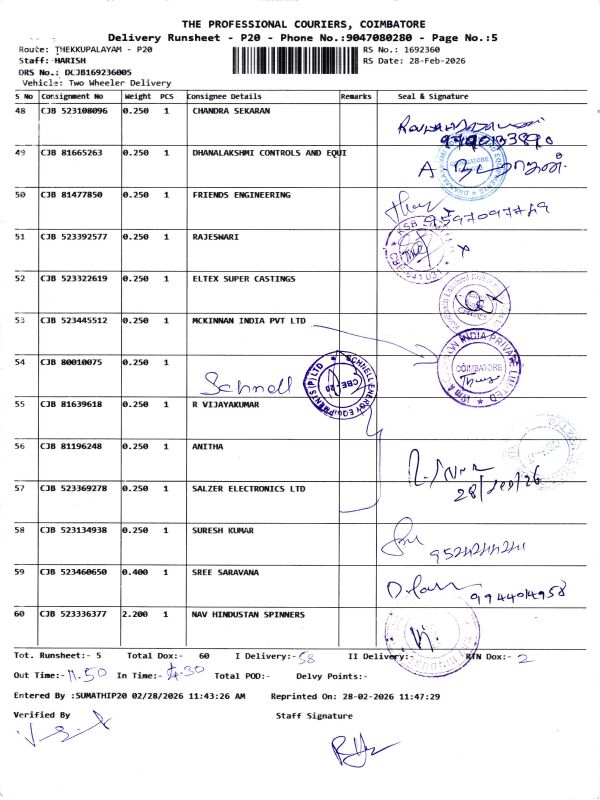 THE PROFESSIONAL COURIERS, COIMBATORE
Delivery Runsheet - P20 - Phone No.:9047080280 - Page No.:5
Route: THEKKUPALAYAM - P20 RS No.: 1692360
Staff: HARISH RS Date: 28-Feb-2026
DRS No.: DCJB169236005
Vehicle: Two Wheeler Delivery
S No Consignment No Weight PCS Consignee Details Remarks Seal & Signature
48 CJB 523108096 0.250 1 CHANDRA SEKARAN
49 CJB 81665263 0.250 1 DHANALAKSHMI CONTROLS AND EQUI
50 CJB 81477850 0.250 1 FRIENDS ENGINEERING
51 CJB 523392577 0.250 1 RAJESWARI
52 CJB 523322619 0.250 1 ELTEX SUPER CASTINGS
53 CJB 523445512 0.250 1 MCKINNAN INDIA PVT LTD
COIMBATORE
54 CJB 80010075 0.250 1
Schnell
SCHNELL ENERGY EQUIPMENTS (P) LTD
CBE-20
55 CJB 81639618 0.250 1 R VIJAYAKUMAR
56 CJB 81196248 0.250 1 ANITHA
57 CJB 523369278 0.250 1 SALZER ELECTRONICS LTD
58 CJB 523134938 0.250 1 SURESH KUMAR
59 CJB 523460650 0.400 1 SREE SARAVANA
9944014958
60 CJB 523336377 2.200 1 NAV HINDUSTAN SPINNERS
Tot. Runsheet:- 5 Total Dox:- 60 I Delivery:- 58 II Delivery:- RTN Dox:- 2
Out Time:- 11.50 In Time:- 4.30 Total POD:- Delvy Points:-
Entered By :SUMATHIP20 02/28/2026 11:43:26 AM Reprinted On: 28-02-2026 11:47:29
Verified By Staff Signature